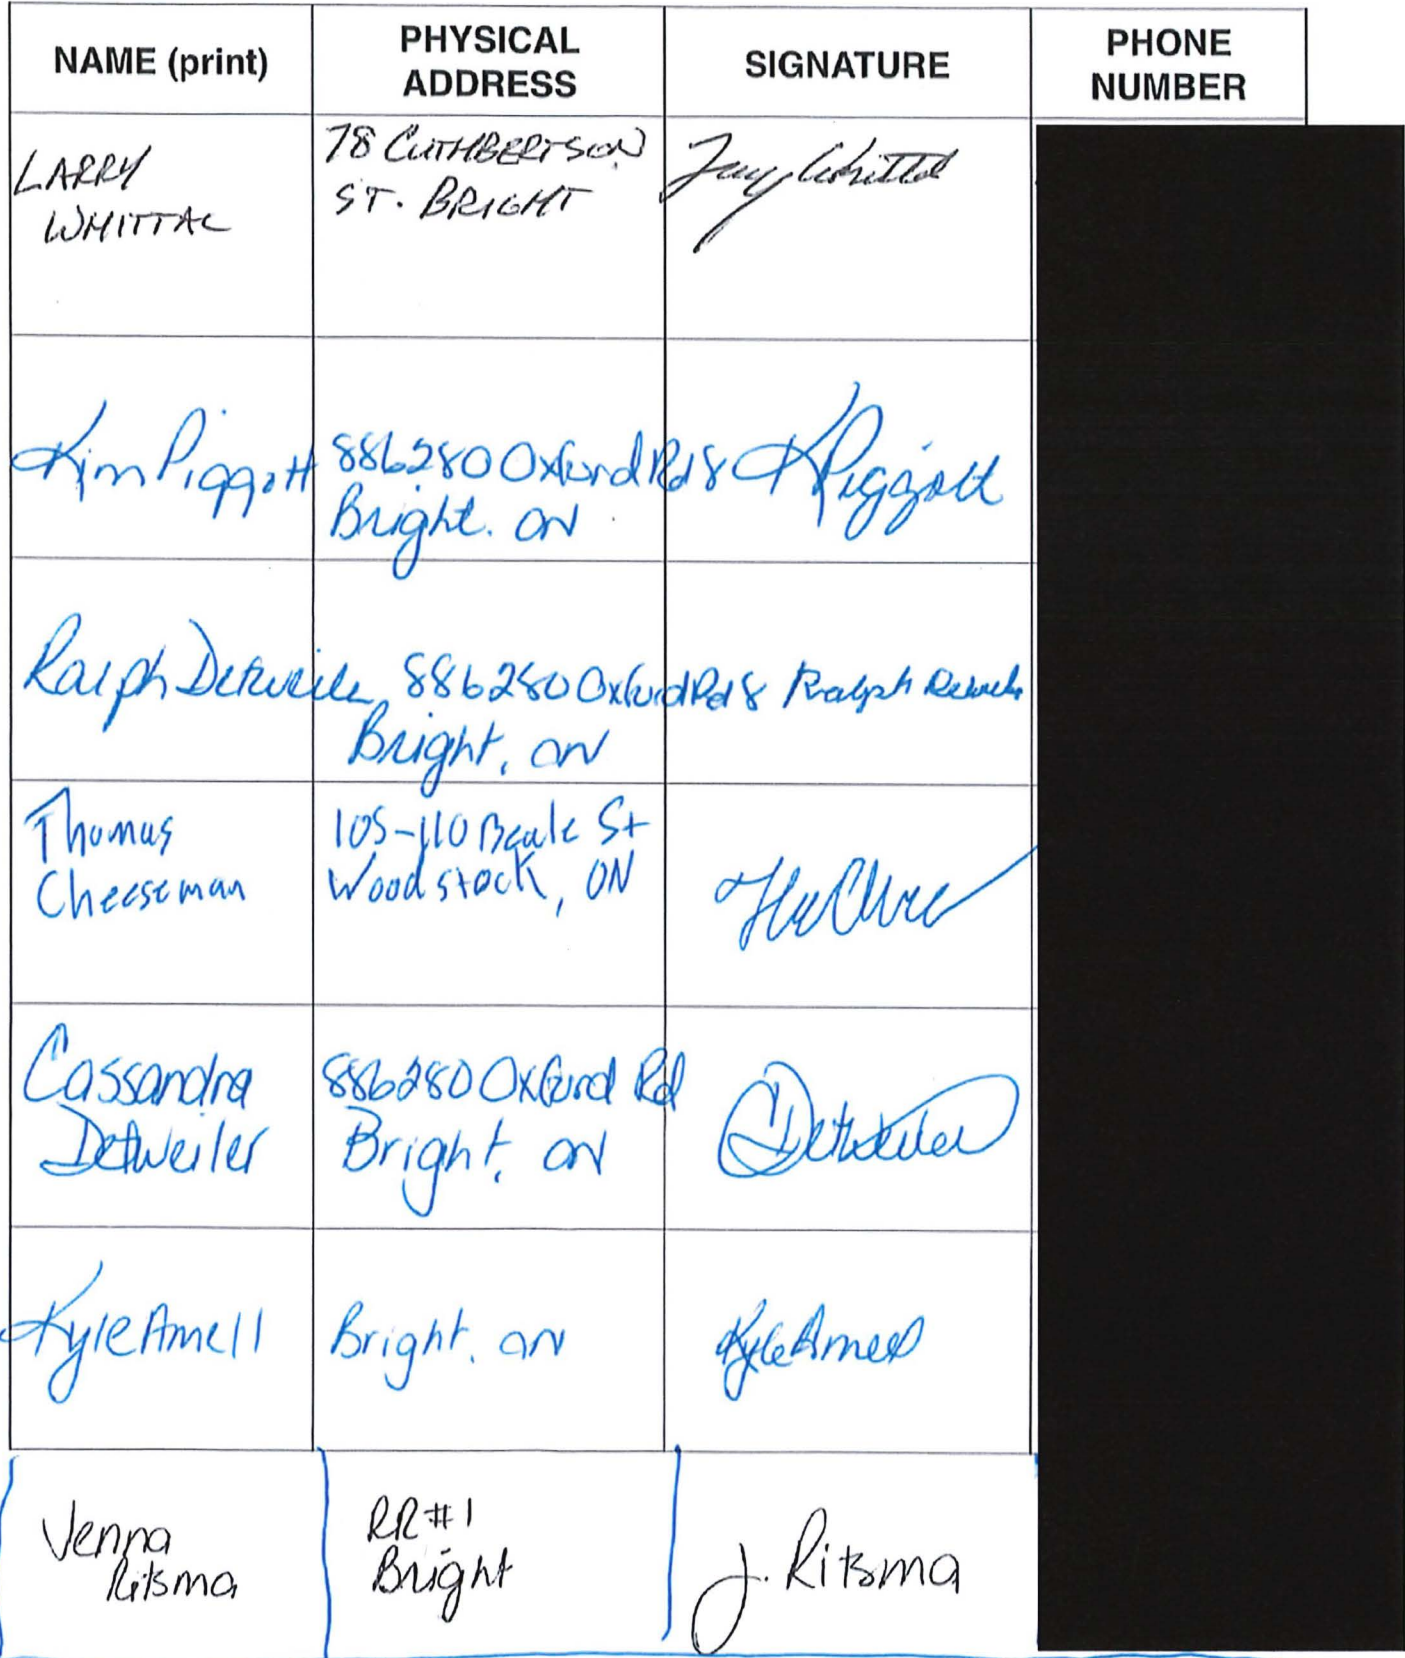 NAME (print)
PHYSICAL
ADDRESS
SIGNATURE
PHONE
NUMBER
LARRY
WHITTAL
78 CUTHBERTSON
ST. BRIGHT
Kim Piggott
886280 Oxford Rd 8
Bright. ON
KPiggott
Ralph Detweiler
886280 Oxford Rd 8
Bright, ON
Ralph
Thomas
Cheeseman
105-110 Beale St
Woodstock, ON
Cassandra
Detweiler
886280 Oxford Rd
Bright, ON
CDetweiler
Kyle Amell
Bright, ON
Kyle Amell
Jenna
Ritsma
RR#1
Bright
J. Ritsma